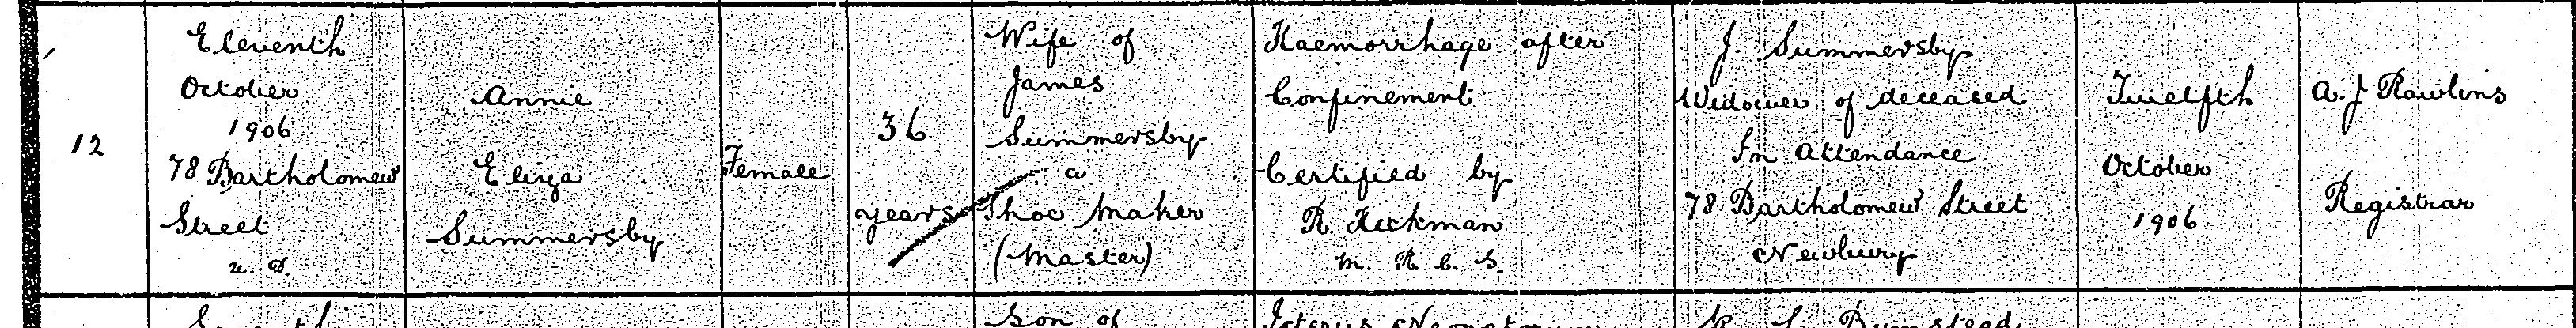 12
Eleventh
October
1906
78 Bartholomew
Street
u. D.
Annie
Eliza
Summersby
Female
36
years
Wife of
James
Summersby
a
Shoe Maker
(Master)
Haemorrhage after
Confinement
Certified by
R. Hickman
M. R. C. S.
J. Summersby
Widower of deceased
In attendance
78 Bartholomew Street
Newbury
Twelfth
October
1906
A. J. Rawlins
Registrar
Son of